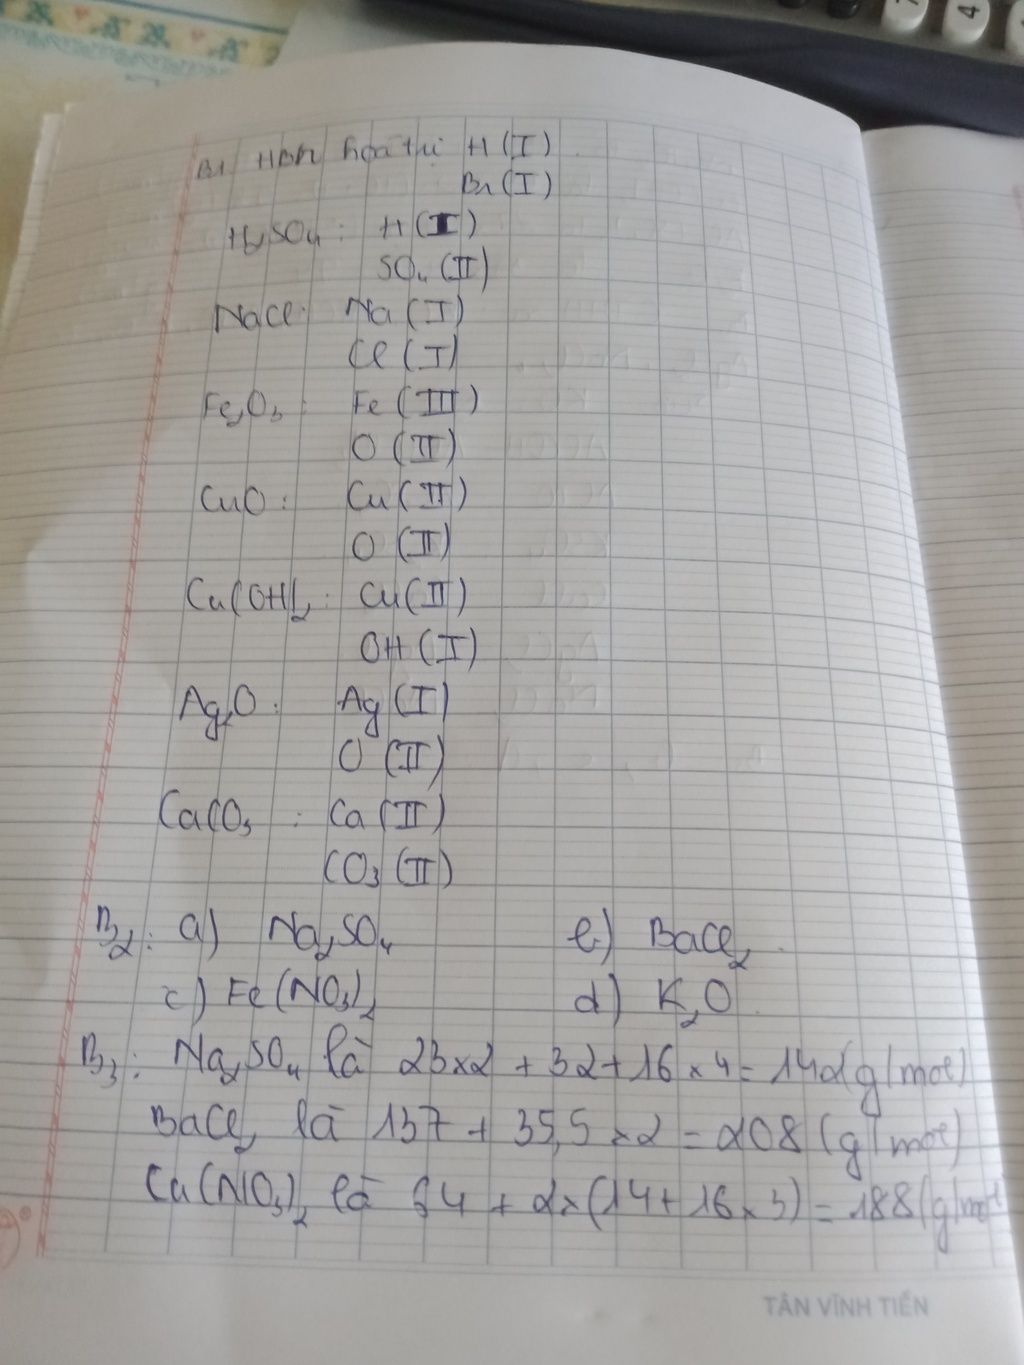 B1 HBr hóa trị H (I)
Br (I)
H₂SO₄ : H (I)
SO₄ (II)
NaCl : Na (I)
Cl (I)
Fe₂O₃ : Fe (III)
O (II)
CuO : Cu (II)
O (II)
Cu(OH)₂ : Cu (II)
OH (I)
Ag₂O : Ag (I)
O (II)
CaCO₃ : Ca (II)
CO₃ (II)
B2 : a) Na₂SO₄ b) BaCl₂
c) Fe(NO₃)₂ d) K₂O
B3 : Na₂SO₄ là 23×2 + 32 + 16 × 4 = 142 (g/mol)
BaCl₂ là 137 + 35,5 × 2 = 208 (g/mol)
Cu(NO₃)₂ là 64 + 2×(14 + 16 × 3) = 188 (g/mol)
TÂN VĨNH TIẾN
7 4